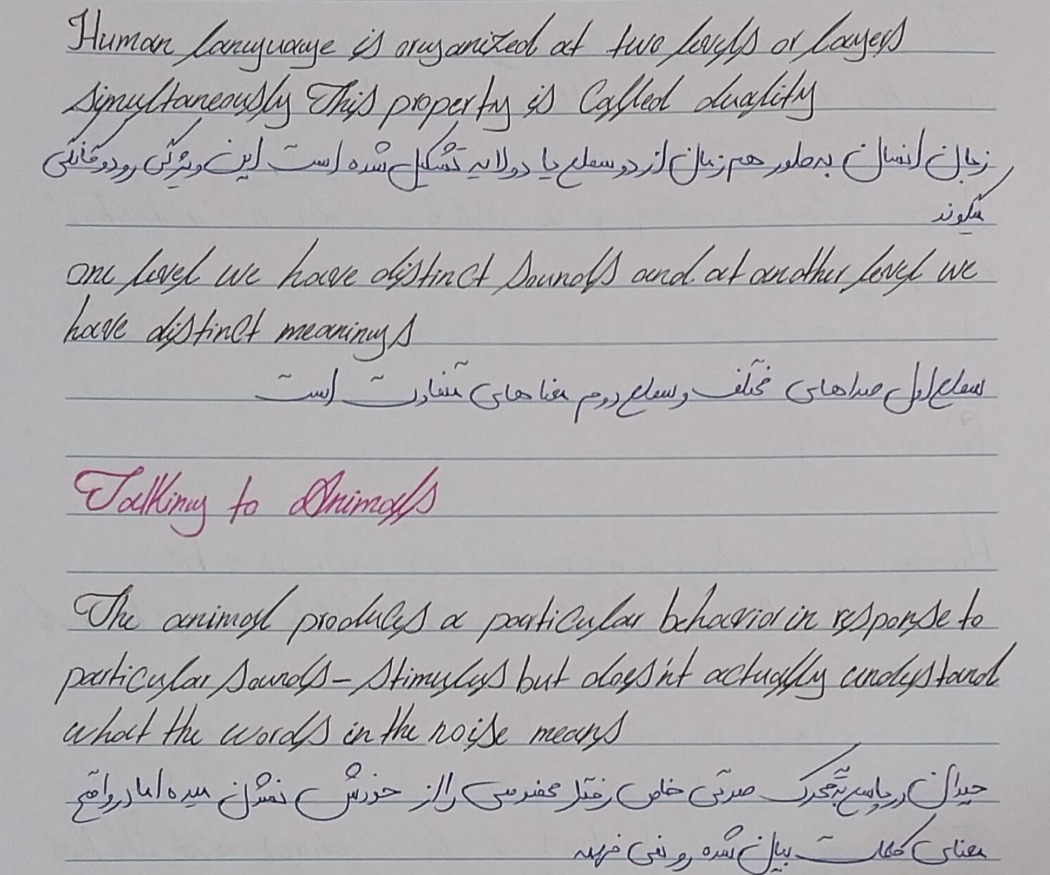 Human language is organized at two levels or layers
simultaneously This property is Called duality
زبان انسان به طور هم زمان از دو سطح یا دولایه تشکیل شده است این ویژگی رو دوگانگی
میگوند
one level we have distinct Sounds and at another level we
have distinct meanings
سطح اول صداهای مختلف و سطح دوم معناهای متفاوت است
Talking to Animals
The animal produces a particular behavior in response to
particular sounds – Stimulus but does'nt actually undestand
what the words in the noise means
حیوان در پاسخ به محرک صوتی خاص رفتار مخصوصی را از خودش نشان میده اما در واقع
معنای کلمات بیان شده رو نمی فهمه